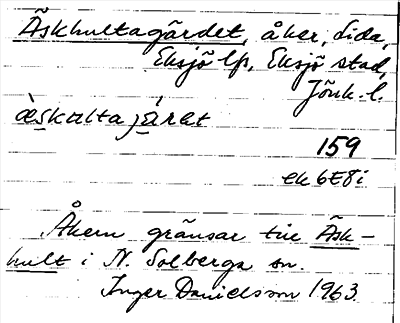 Äskhultagärdet, åker, Sida,
Eksjö lfs, Eksjö stad,
Jönk. l.
æ̀skalta jǽrət
159
ek 6E8i
Åkern gränsar till Äsk-
hult i N. Solberga sn.
Inger Danielsson 1963.